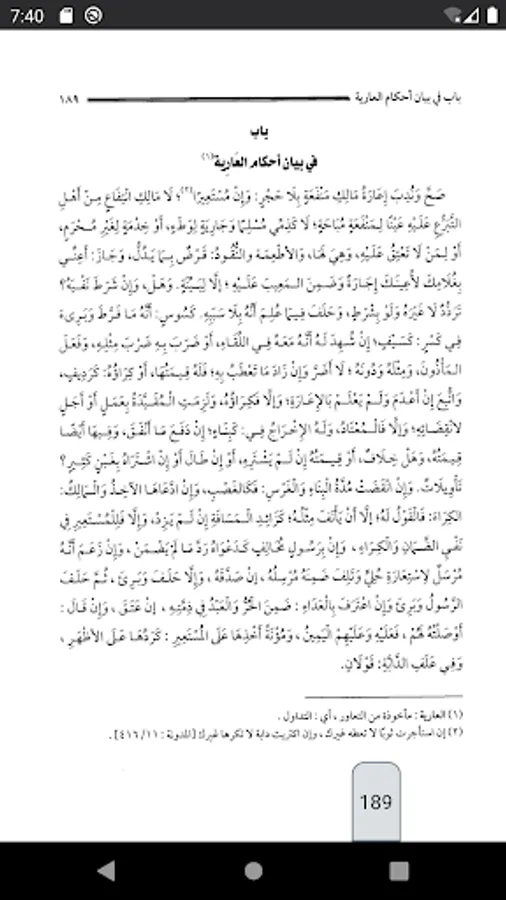 7:40
باب في بيان أحكام العارية ١٨٩
باب
في بيان أحكام العَارِية(١)
صَحَّ وَنُدِبَ إِعَارَةُ مَالِكِ مَنْفَعَةٍ بِلَا حَجْرٍ: وَإِنْ مُسْتَعِيرًا(٢)؛ لَا مَالِكِ انْتِفَاعٍ مِنْ أَهْلِ
التَّبَرُّعِ عَلَيْهِ عَيْنًا لِمَنْفَعَةٍ مُبَاحَةٍ؛ لَا كَذِمِّي مُسْلِمًا وَجَارِيَةٍ لِوَطْءٍ، أَوْ خِدْمَةٍ لِغَيْرِ مُحْرَمٍ،
أَوْ لِمَنْ لَا تَعْتِقُ عَلَيْهِ، وَهِيَ لَهَا، وَالأَطْعِمَةُ وَالنُّقُودُ: قَرْضٌ بِمَا يَدُلُّ، وَجَازَ: أَعِنِّي
بِغُلَامِكَ لأُعِينَكَ إِجَارَةً وَضَمِنَ المَغِيبَ عَلَيْهِ؛ إِلَّا لِبَيِّنَةٍ. وَهَلْ، وَإِنْ شَرَطَ نَفْيَهُ؟
تَرَدُّدٌ لَا غَيْرَهُ وَلَوْ بِشَرْطٍ، وَحَلَفَ فِيمَا عُلِمَ أَنَّهُ بِلَا سَبَبِهِ. كَسُوسٍ: أَنَّهُ مَا فَرَّطَ وَبَرِىءَ
فِي كَسْرِ: كَسَيْفٍ؛ إِنْ شُهِدَ لَهُ أَنَّهُ مَعَهُ فِي اللِّقَاءِ، أَوْ ضَرَبَ بِهِ ضَرْبَ مِثْلِهِ، وَفَعَلَ
المَأْذُونَ، وَمِثْلَهُ وَدُونَهُ؛ لَا أَضَرَّ وَإِنْ زَادَ مَا تَعْطَبُ بِهِ؛ فَلَهُ قِيمَتُهَا، أَوْ كِرَاؤُهُ: كَرَدِيفٍ،
وَاتُّبِعَ إِنْ أَعْدَمَ وَلَمْ يَعْلَمْ بِالإِعَارَةِ؛ وَإِلَّا فَكِرَاؤُهُ، وَلَزِمَتِ الْمُقَيَّدَةُ بِعَمَلٍ أَوْ أَجَلٍ
لانْقِضَائِهِ؛ وَإِلَّا فَالْمُعْتَادُ، وَلَهُ الإِخْرَاجُ فِي: كَبِنَاءٍ؛ إِنْ دَفَعَ مَا أَنْفَقَ، وَفِيهَا أَيْضًا
قِيمَتُهُ، وَهَلْ خِلَافٌ، أَوْ قِيمَتُهُ إِنْ لَمْ يَشْتَرِهِ، أَوْ إِنْ طَالَ أَوْ إِنْ اشْتَرَاهُ بِغَبْنٍ كَثِيرٍ؟
تَأْوِيلَاتٌ. وَإِنْ انْقَضَتْ مُدَّةُ الْبِنَاءِ وَالْغَرْسِ: فَكَالغَصْبِ، وَإِنْ ادَّعَاهَا الآخِذُ وَالْمَالِكُ:
الكِرَاءَ: فَالْقَوْلُ لَهُ؛ إِلَّا أَنْ يَأْنَفَ مِثْلُهُ؛ كَزَائِدِ الْمَسَافَةِ إِنْ لَمْ يَزِدْ، وَإِلَّا فَلِلْمُسْتَعِيرِ فِي
نَفْيِ الضَّمَانِ وَالْكِرَاءِ، وَإِنْ بِرَسُولٍ مُخَالِفٍ كَدَعْوَاهُ رَدَّ مَا لَمْ يَضْمَنْ، وَإِنْ زَعَمَ أَنَّهُ
مُرْسَلٌ لِاسْتِعَارَةِ حُلِيٍّ وَتَلِفَ ضَمِنَهُ مُرْسِلُهُ، إِنْ صَدَّقَهُ، وَإِلَّا حَلَفَ وَبَرِئَ، ثُمَّ حَلَفَ
الرَّسُولُ وَبَرِئَ وَإِنْ اعْتَرَفَ بِالْعَدَاءِ: ضَمِنَ الْحُرُّ وَالْعَبْدُ فِي ذِمَّتِهِ، إِنْ عَتَقَ، وَإِنْ قَالَ:
أَوْصَلْتُهُ لَهُمْ، فَعَلَيْهِ وَعَلَيْهِمُ الْيَمِينُ، وَمُؤْنَةُ أَخْذِهَا عَلَى الْمُسْتَعِيرِ: كَرَدِّهَا عَلَى الأَظْهَرِ،
وَفِي عَلَفِ الدَّابَّةِ: قَوْلَانِ.
(١) العارية: مأخوذة من التعاور، أي: التداول.
(٢) إن استأجرت ثوبًا لا تعطه غيرك، وإن اكتريت دابة لا تكرها غيرك [المدونة: ٤١٦/١١].
189